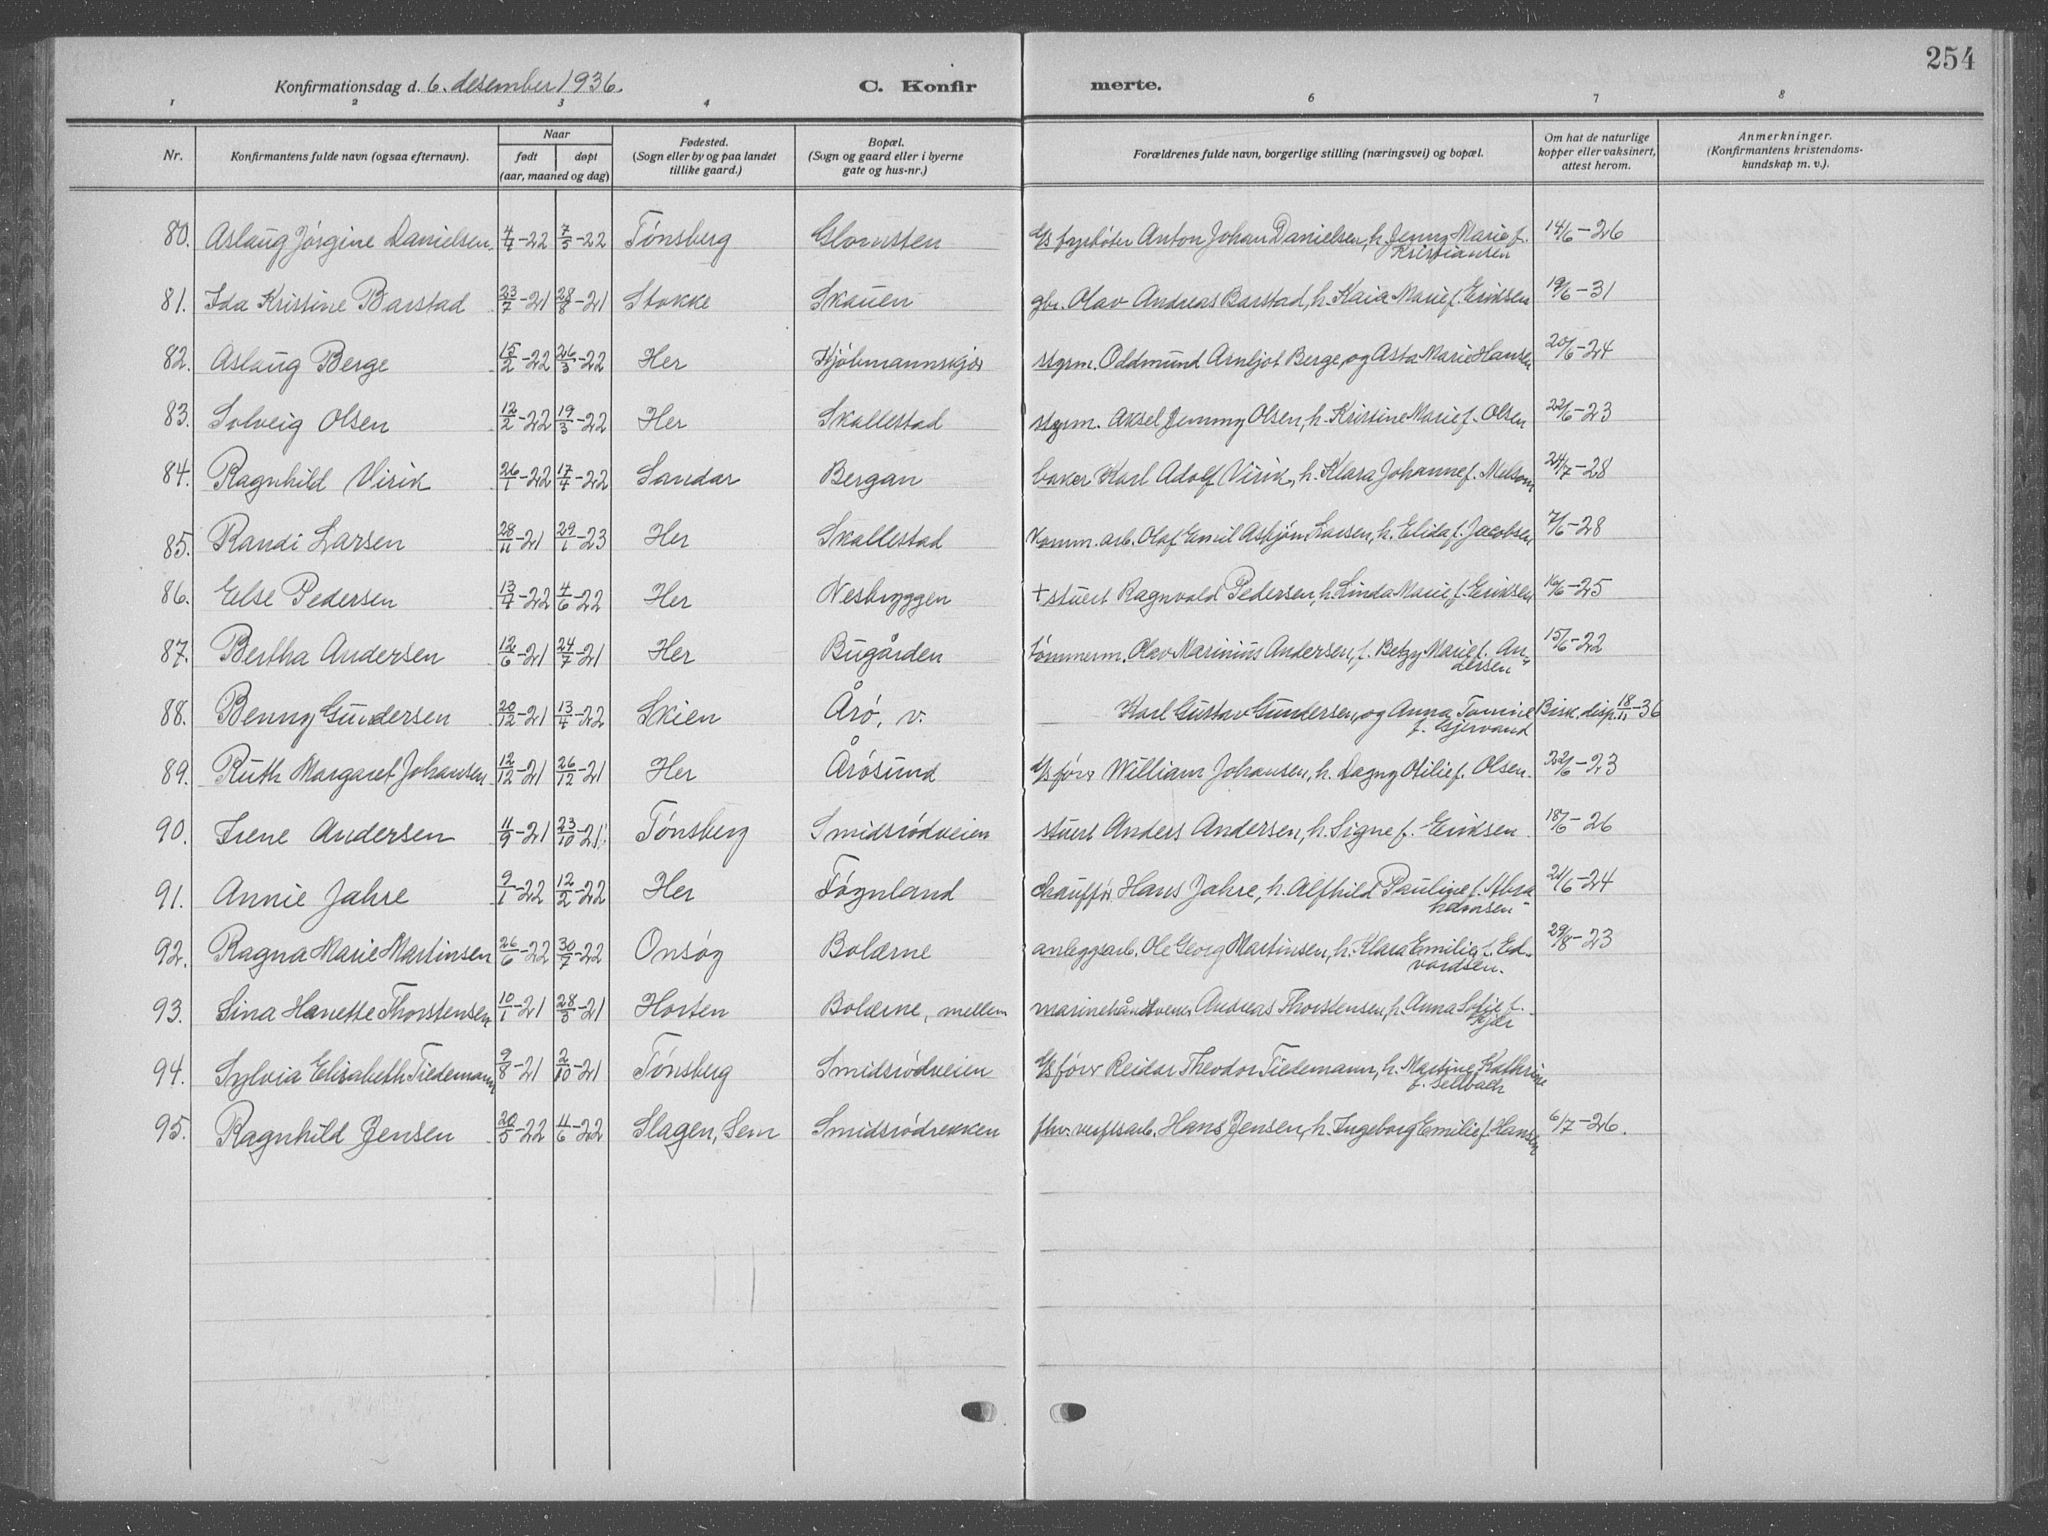 254
Konfirmationsdag d. 6. desember 1936.
C. Konfirmerte.
1 2 3 4 6 7 8
Nr.
Konfirmantens fulde navn (ogsaa efternavn).
Naar
født
døpt
(aar, maaned og dag)
Fødested.
(Sogn eller by og paa landet
tillike gaard.)
Bopæl.
(Sogn og gaard eller i byerne
gate og hus-nr.)
Forældrenes fulde navn, borgerlige stilling (næringsvei) og bopæl.
Om hat de naturlige
kopper eller vaksinert,
attest herom.
Anmerkninger.
(Konfirmantens kristendoms-
kundskap m. v.).
80. Aslaug Jørgine Danielsen. 4/4-22 7/5-22 Tønsberg Glomsten H/s fyrbøter Anton Johan Danielsen, h. Jenny Marie f. 14/6-26
Kristiansen
81. Ida Kristine Barstad 23/7-21 28/8-21 Stokke Skauen gbr. Olav Andreas Barstad, h. Kaia Marie f. Eriksen 19/6-31
82. Aslaug Berge 15/2-22 26/3-22 Her Kjøbmannskjær styrm. Oddmund Arnljot Berge, og Asta Marie Hansen 20/6-24
83. Solveig Olsen 12/2-22 19/3-22 Her Skallestad styrm. Aksel Jemmy Olsen, h. Kristine Marie f. Olsen 22/6-23
84. Ragnhild Virik 26/1-22 17/4-22 Sandar Bergan baker Karl Adolf Virik, h. Klara Johanne f. Melsom 24/7-28
85. Randi Larsen 28/11-21 29/1-23 Her Skallestad komm. arb. Olaf Emil Asbjørn Larsen, h. Elida f. Jacobsen 7/6-28
86. Else Pedersen 13/4-22 4/6-22 Her Nesbryggen + stuert Ragnvald Pedersen, h. Linda Marie f. Eriksen 16/6-25
87. Bertha Andersen 12/6-21 24/7-21 Her Bugården tømmerm. Olav Marinius Andersen, f. Betzy Marie f. An-
dersen 15/6-22
88. Benny Gundersen 20/12-21 13/4-22 Skien Årø, v. Karl Gustav Gundersen, og Anna Tomine
f. Gjervand Bisk. disp. 18/11-36
89. Ruth Margaret Johansen 12/12-21 26/12-21 Her Årøsund H/s fører William Johansen, h. Dagny Otilie f. Olsen. 22/6-23
90. Irene Andersen 11/9-21 23/10-21 Tønsberg Smidsrødveien stuert Anders Andersen, h. Signe f. Eriksen. 18/6-26
91. Annie Jahre 9/1-22 12/2-22 Her Føynland chauffør Hans Jahre, h. Alfhild Pauline f. Abra-
hamsen 21/6-24
92. Ragna Marie Martinsen 26/6-22 30/7-22 Onsøy Bolærne anleggsarb. Ole Georg Martinsen, h. Klara Emilie f. Ed-
vardsen. 29/8-23
93. Sina Hanette Thorstensen 10/1-21 28/3-21 Horten Bolærne, mellem marinehåndverker Andreas Thorstensen, h. Anna Sofie f.
Kjær
94. Sylvia Elisabeth Tiedemann 9/8-21 2/10-21 Tønsberg Smidsrødveien H/s fører Reidar Theodor Tiedemann, h. Martine Kathrine
f. Sellbach
95. Ragnhild Jensen 20/5-22 11/6-22 Slagen, Sem Smidsrødrekken fhv. verftsarb. Hans Jensen, h. Ingeborg Emilie f. Hansen 6/7-26.